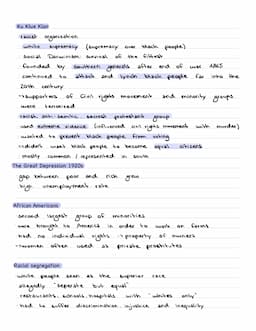 Ku Klux Klan
racist organisation
white supremacy (supremacy over black people)
Social Darwinism: survival of the fittest
founded by southern generals after end of war 1865
continued to attack and lynch black people far into the
20th century
→supporters of Civil rights movement and minority groups
were terrorized
racist, anti-semitic, secret protestant group
used extreme violence (influenced civil rights movement with murder)
wanted to prevent black people from voting
→didn't want black people to become equal citizens
mostly common / represented in south
The Great Depression 1920s
gap between poor and rich grew
high unemployment rate
African Americans
second largest group of minorities
were brought to America in order to work on farms
had no individual rights → property of owners
→women often used as private prostitutes
Racial segregation
white people seen as the superior race
allegedly "seperate but equal"
restaurants, schools, hospitals with "whites only"
had to suffer discrimination, injustice and inequality